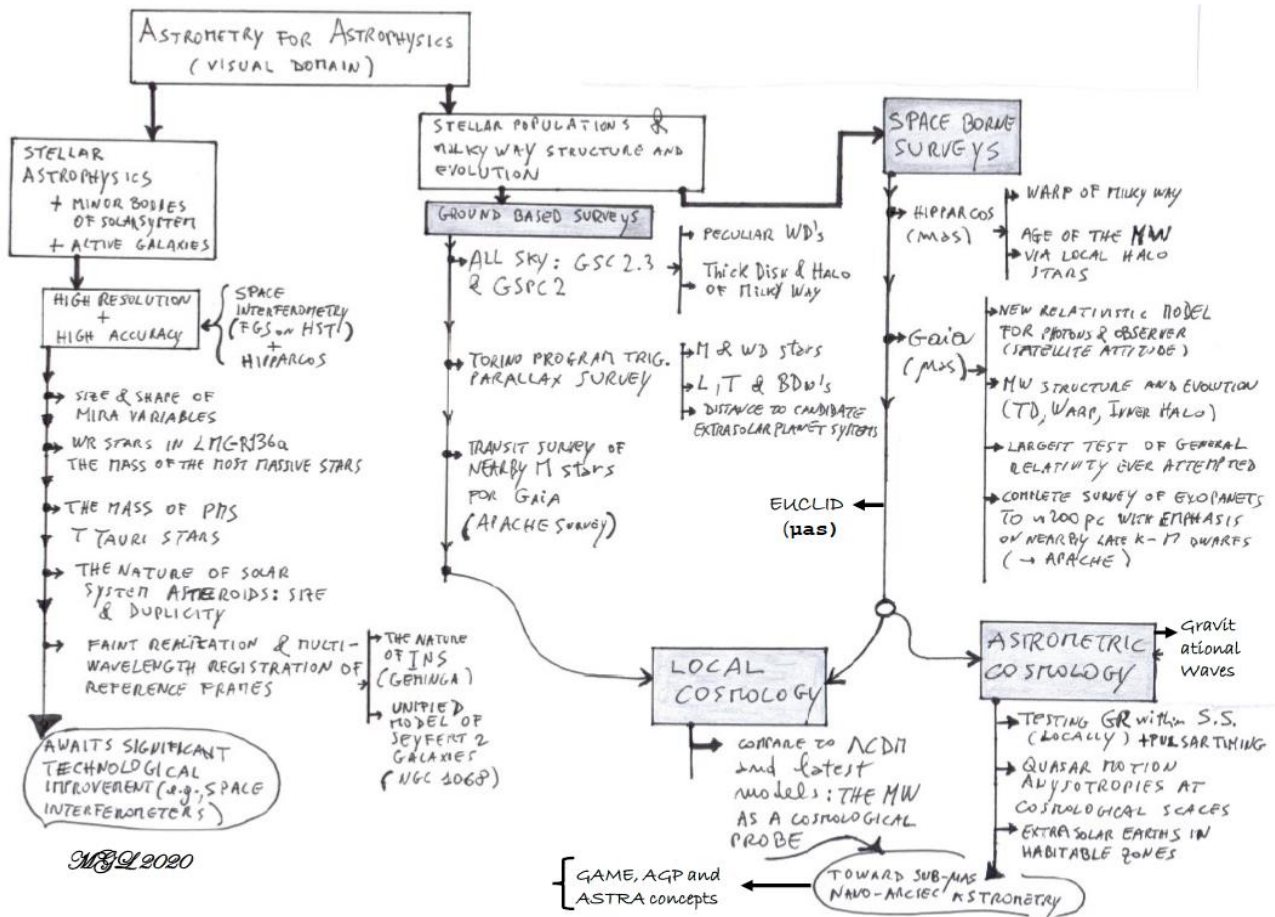 ASTROMETRY FOR ASTROPHYSICS
(VISUAL DOMAIN)
STELLAR
ASTROPHYSICS
+ MINOR BODIES
OF SOLAR SYSTEM
+ ACTIVE GALAXIES
HIGH RESOLUTION
+
HIGH ACCURACY
SPACE
INTERFEROMETRY
(FGS on HST)
+
HIPPARCOS
SIZE & SHAPE OF
MIRA VARIABLES
WR STARS IN LMC-R136a
THE MASS OF THE MOST MASSIVE STARS
THE MASS OF PMS
T TAURI STARS
THE NATURE OF SOLAR
SYSTEM ASTEROIDS: SIZE
& DUPLICITY
FAINT REALIZATION & MULTI-
WAVELENGTH REGISTRATION OF
REFERENCE FRAMES
THE NATURE
OF INS
(GEMINGA)
UNIFIED
MODEL OF
SEYFERT 2
GALAXIES
(NGC 1068)
AWAITS SIGNIFICANT
TECHNOLOGICAL
IMPROVEMENT (e.g., SPACE
INTERFEROMETERS)
MGL 2020
STELLAR POPULATIONS &
MILKY WAY STRUCTURE AND
EVOLUTION
GROUND BASED SURVEYS
ALL SKY: GSC 2.3
& GSPC 2
PECULIAR WD's
Thick Disk & HALO
OF MILKY WAY
TORINO PROGRAM TRIG.
PARALLAX SURVEY
M & WD stars
L, T & BDw's
DISTANCE TO CANDIDATE
EXTRASOLAR PLANET SYSTEMS
TRANSIT SURVEY OF
NEARBY M stars
FOR GAIA
(APACHE SURVEY)
SPACE BORNE
SURVEYS
HIPPARCOS
(mas)
WARP OF MILKY WAY
AGE OF THE MW
VIA LOCAL HALO
STARS
Gaia
(μas)
NEW RELATIVISTIC MODEL
FOR PHOTONS & OBSERVER
(SATELLITE ATTITUDE)
MW STRUCTURE AND EVOLUTION
(TD, WARP, INNER HALO)
LARGEST TEST OF GENERAL
RELATIVITY EVER ATTEMPTED
COMPLETE SURVEY OF EXOPANETS
TO ~200 pc WITH EMPHASIS
ON NEARBY LATE K-M DWARFS
(→ APACHE)
EUCLID
(μas)
LOCAL
COSMOLOGY
COMPARE TO ΛCDM
and latest
models: THE MW
AS A COSMOLOGICAL
PROBE
ASTROMETRIC
COSMOLOGY
Gravit
ational
Waves
TESTING GR within S.S.
(LOCALLY) + PULSAR TIMING
QUASAR MOTION
ANYSOTROPIES AT
COSMOLOGICAL SCALES
EXTRA SOLAR EARTHS IN
HABITABLE ZONES
TOWARD SUB-μAS
NANO-ARCSEC ASTROMETRY
GAME, AGP and
ASTRA concepts